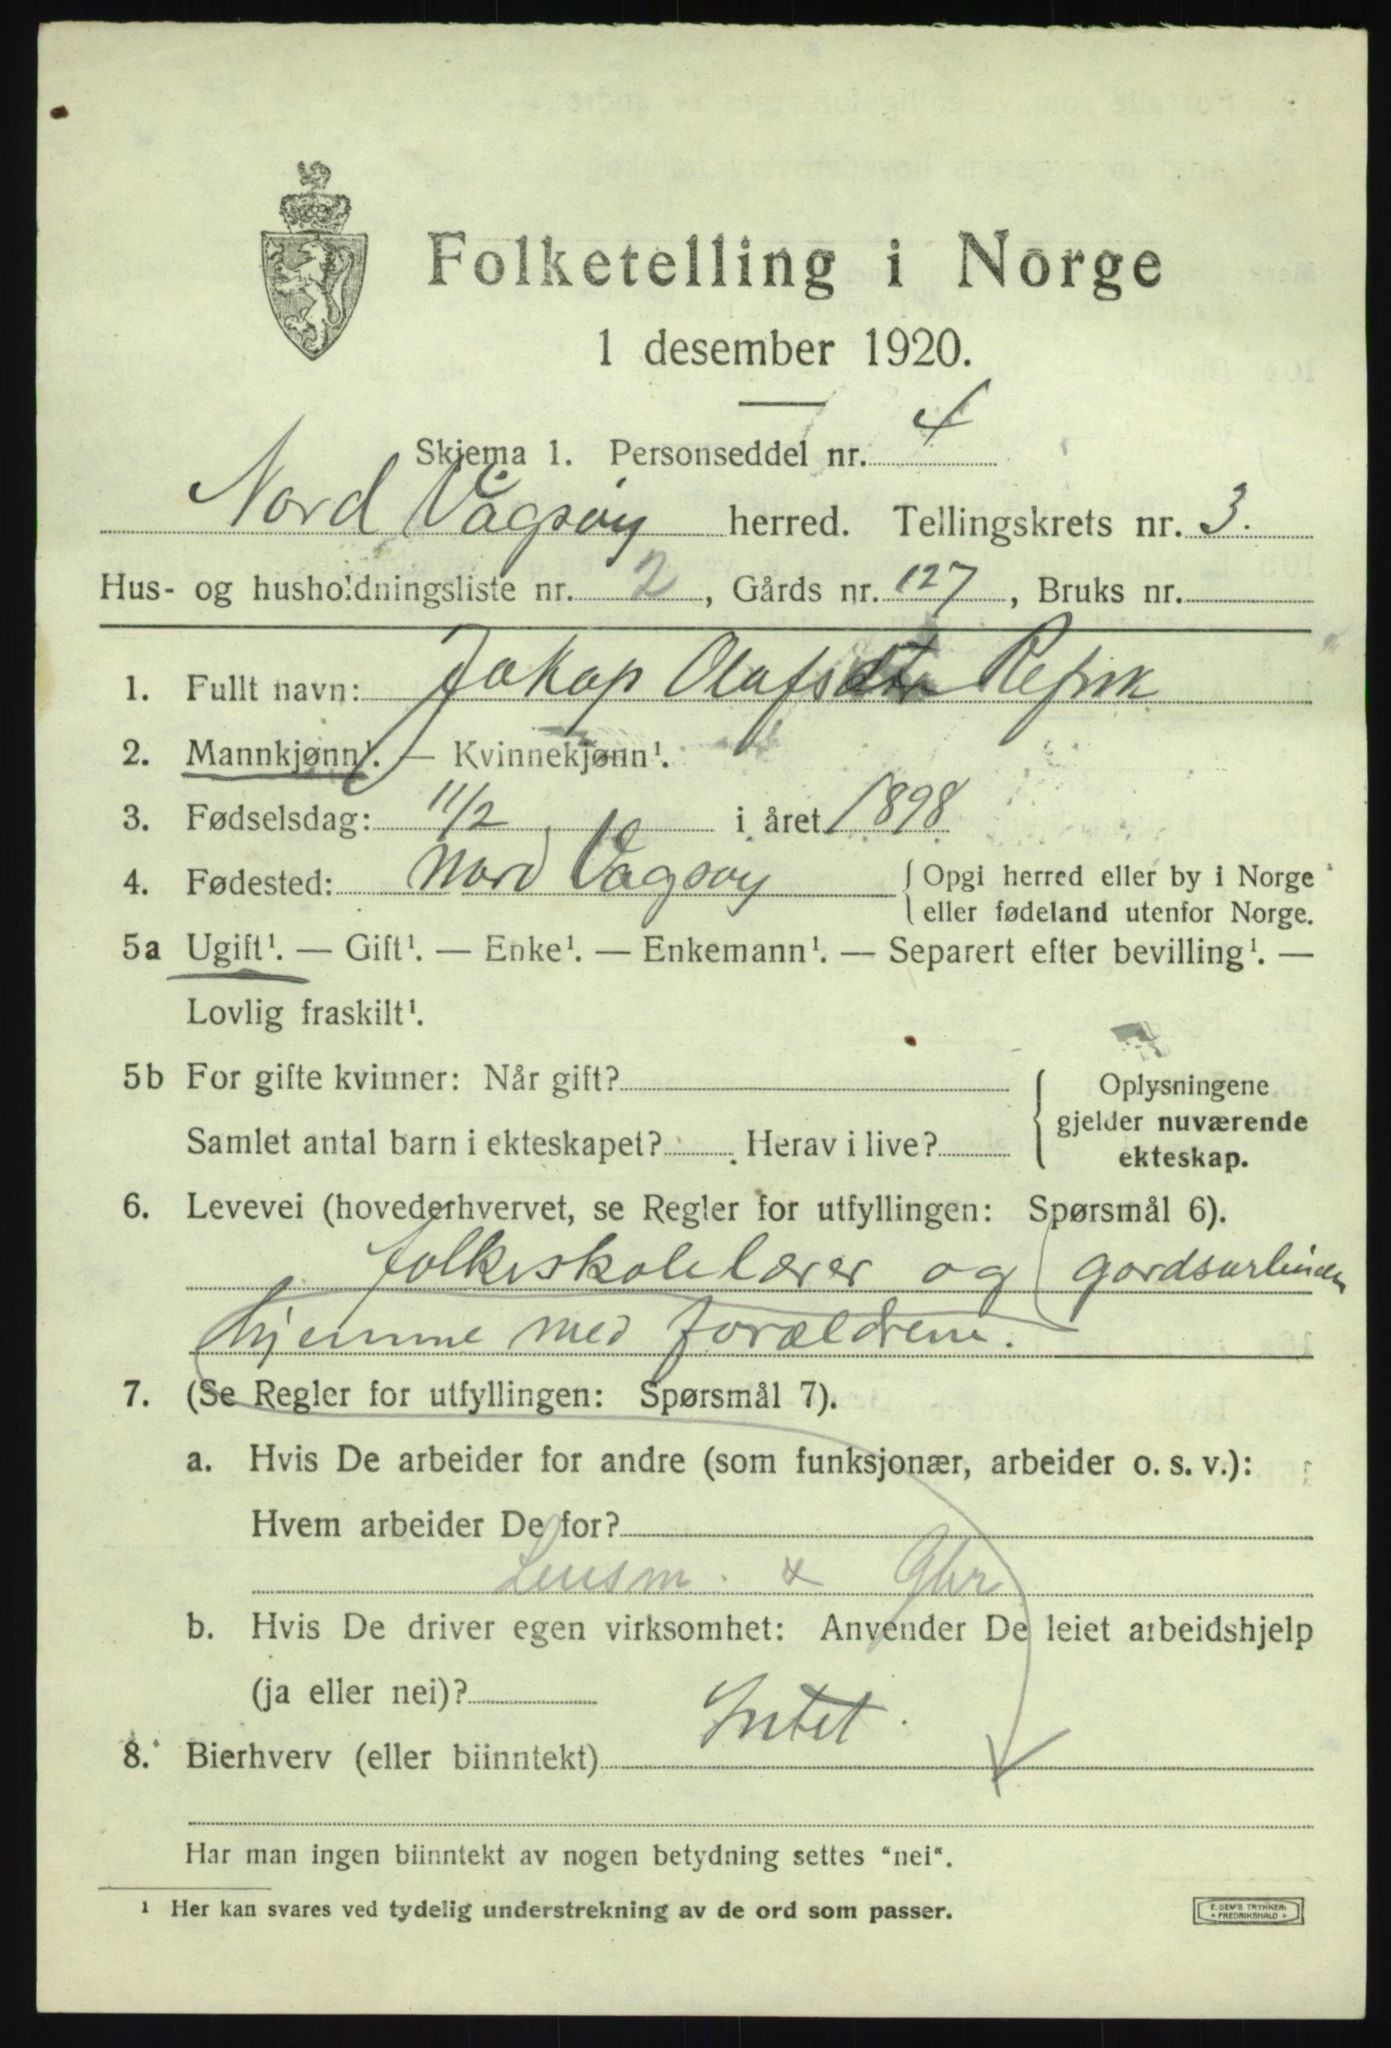 Folketelling i Norge
1 desember 1920.
Skjema 1. Personseddel nr. 4
Nord Vågsøy herred. Tellingskrets nr. 3.
Hus- og husholdningsliste nr. 2, Gårds nr. 127, Bruks nr.
1. Fullt navn: Jakop Olafsen Refvik
2. Mannkjønn¹. — Kvinnekjønn¹.
3. Fødselsdag: 11/2 i året 1898
4. Fødested: Nord Vågsøy { Opgi herred eller by i Norge
eller fødeland utenfor Norge.
5a Ugift¹. — Gift¹. — Enke¹. — Enkemann¹. — Separert efter bevilling¹. —
Lovlig fraskilt¹.
5b For gifte kvinner: Når gift?
Samlet antal barn i ekteskapet? Herav i live?
{ Oplysningene
gjelder nuværende
ekteskap.
6. Levevei (hovederhvervet, se Regler for utfyllingen: Spørsmål 6).
folkeskolelærer og gardsarbeider
hjemme med forældrene.
7. (Se Regler for utfyllingen: Spørsmål 7).
a. Hvis De arbeider for andre (som funksjonær, arbeider o. s. v.):
Hvem arbeider De for?
b. Hvis De driver egen virksomhet: Anvender De leiet arbeidshjelp
(ja eller nei)?
Intet.
8. Bierhverv (eller biinntekt)
Har man ingen biinntekt av nogen betydning settes "nei".
¹ Her kan svares ved tydelig understrekning av de ord som passer.
E. SEM'S TRYKKERI
• FREDRIKSHALD •